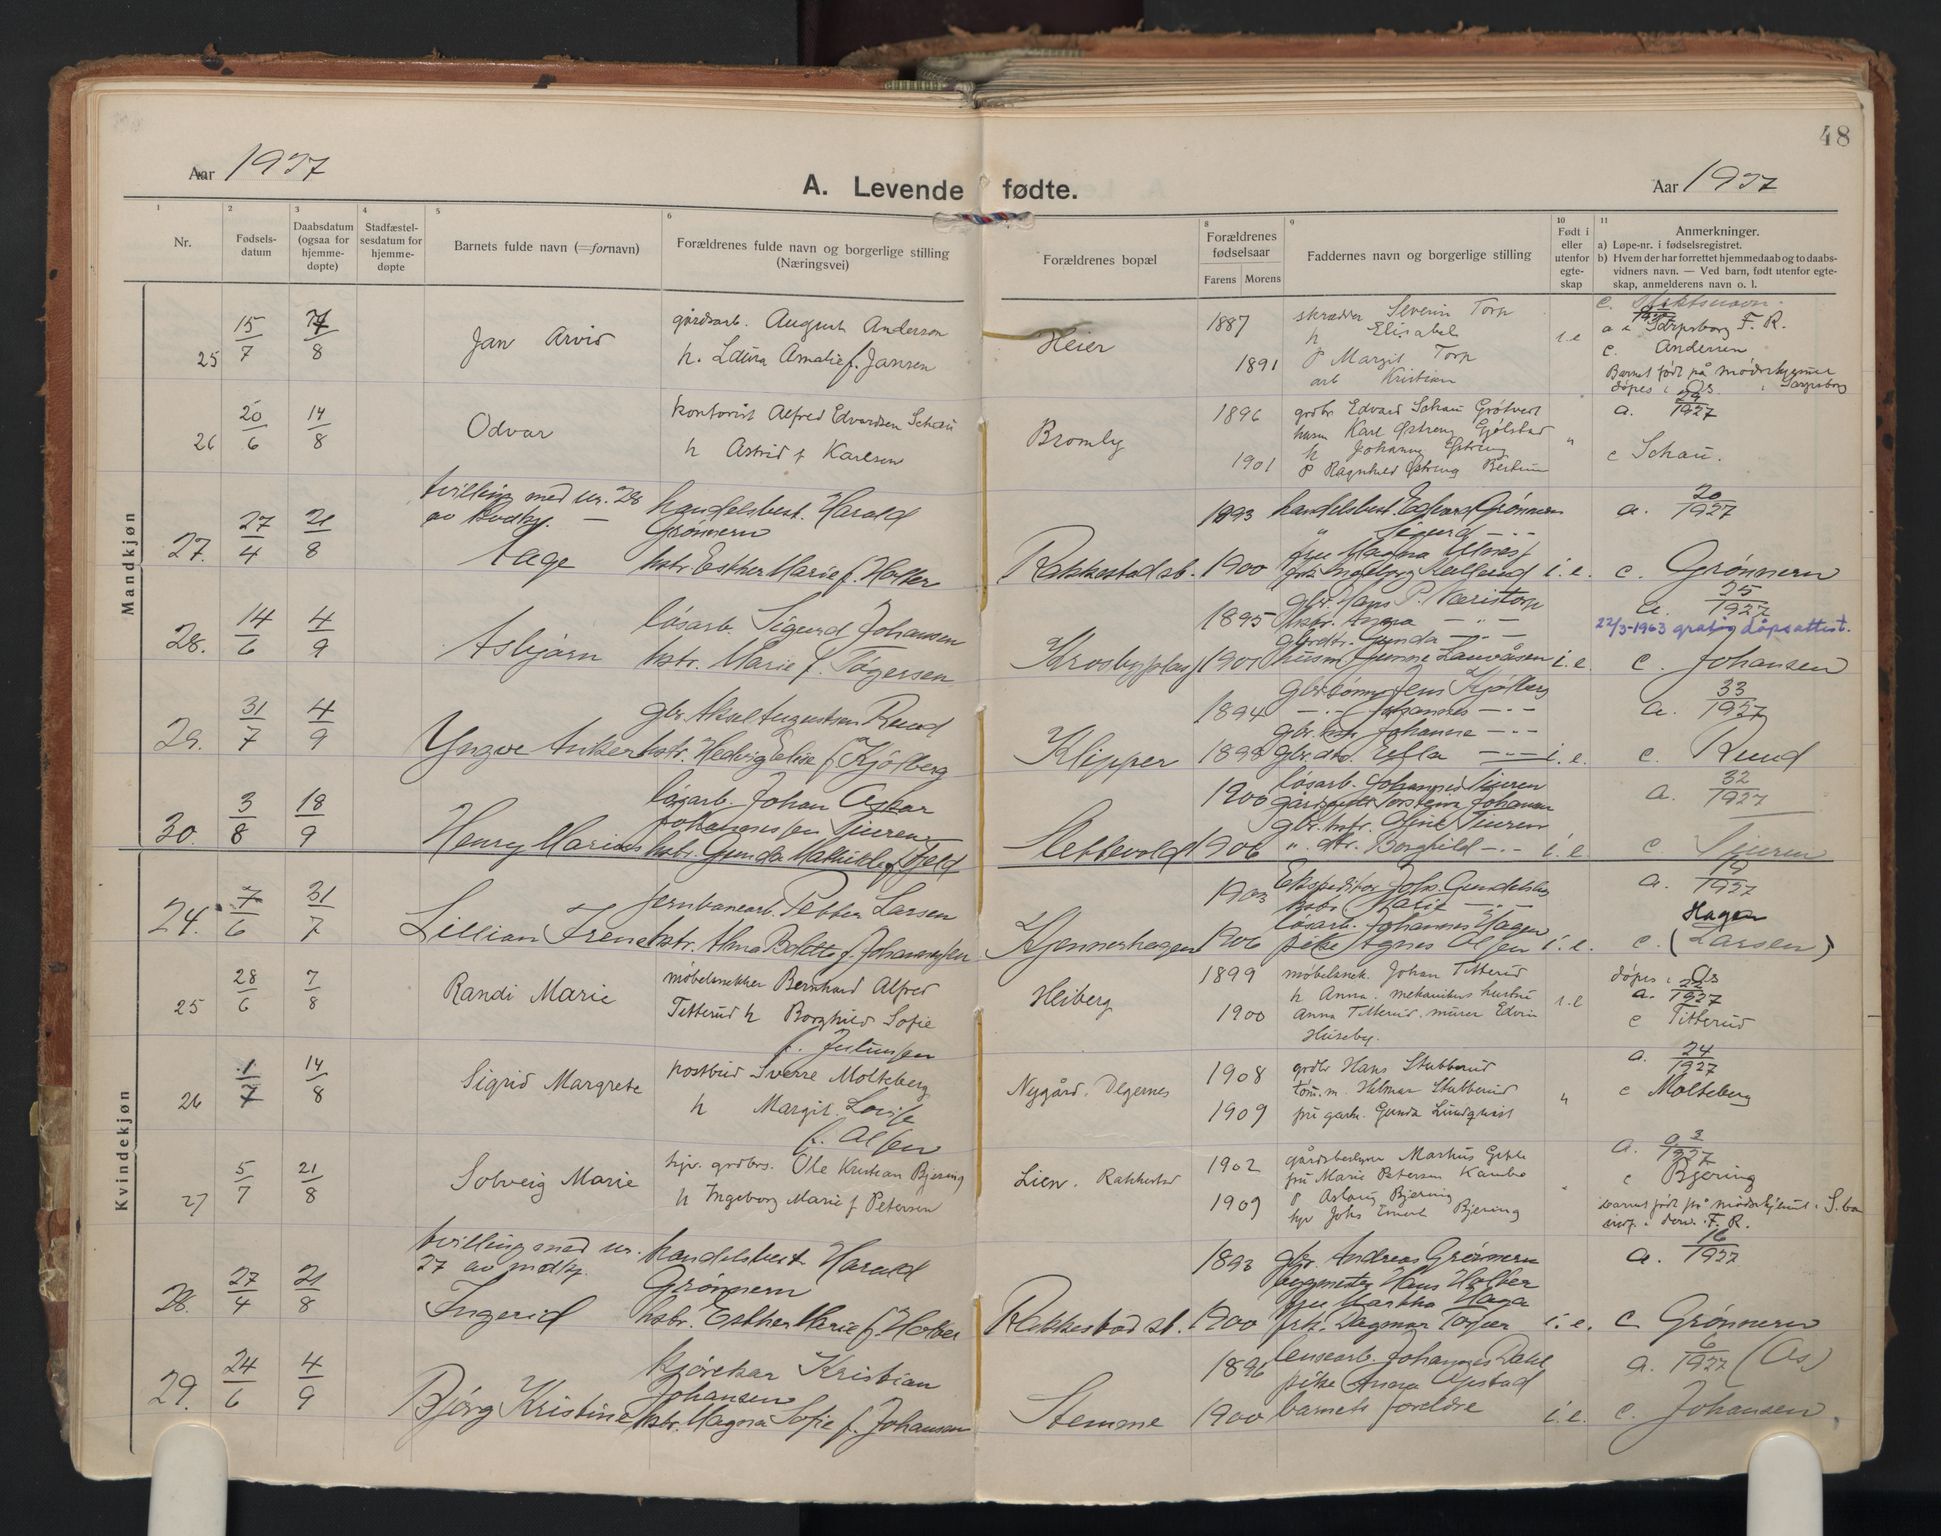 48
Aar 1927
A. Levende fødte.
Aar 1927
1 2 3 4 5 6 8 9 10 11
Nr.
Fødsels-
datum
Daabsdatum
(ogsaa for
hjemme-
døpte)
Stadfæstel-
sesdatum for
hjemme-
døpte
Barnets fulde navn (=fornavn)
Forældrenes fulde navn og borgerlige stilling
(Næringsvei)
Forældrenes bopæl
Forældrenes
fødselsaar
Farens Morens
Faddernes navn og borgerlige stilling
Født i
eller
utenfor
egte-
skap
Anmerkninger.
a) Løpe-nr. i fødselsregistret.
b) Hvem der har forrettet hjemmedaab og to daabs-
vidners navn. — Ved barn, født utenfor egte-
skap, anmelderens navn o. l.
Mandkjøn
25 15/7 /8 Jan Arvid
gårdsarb. August Andersen
h. Laura Amalie f. Jansen
Heier
1887
1891
skrædder Severin Torp
h Elisabel
P Margit Torp
arb Kristian
i.e
a i Sarpsborg F. R.
c. Andersen
Barnet født på mødrehjemmet
døpes i Os i Sarpsborg
26 20/6 14/8 Odvar
kontorist Alfred Edvardsen Schau
h Astrid f Karlsen
Bromby
1896
1901
grdbr Edvard Schau Grøtvedt
husm Karl Østreng Gjølstad
h Johanne Østreng
P Ragnhild Østreng
"
a. 29/1927
c Schau.
27. 27/4 21/8
tvilling med nr. 28
av kvdkj. —
Aage
handelsbest. Harald
Grønnern
hstr. Esther Marie f. Holter
Rakkestad st.
1893
1900
handelsbest. Edvard Grønnern
" Sigurd -"-
fru Magna
frk. Ingeborg
i. e.
a. 20/1927
c. Grønnern
28. 14/6 4/9 Asbjørn
løsarb. Sigurd Johansen
hstr. Marie f. Tøgersen
Krosbyplass
1895
1901
gbr. Hans P. Næristorp
hstr. Anna -"-
gbrdtr. Gunda -"-
husm Gunne
i. e.
a. 25/1927
22/3-1963 gratis dåpsattest.
c. Johansen
29. 31/7 4/9 Yngve Anker
gbr. Aksel Augustsen Ruud
hstr. Hedvig Elise f Kjølberg
Klipper
1894
1898
gbrsønn Jens Kjølberg
-"- Johannes -"-
gbr. hstr Johanne -"-
gbr. dtr. Ella -"-
i. e.
a. 33/1927
c. Ruud
30. 3/8 18/9 Henry Marius
løsarb. Johan Oskar
Johannessen Tjuren
hstr. Gunda Mathilde f Fjeld
Slettevold
1900
1906
løsarb. Johannes Tjuren
Torstein Johansen
gbr. hstr. Oline Tjuren
" dtr. Borghild -"-
i. e.
a. 32/1927
c. Tjuren
Kvindekjøn
24. 7/6 31/7 Lillian Irene
jernbanearb. Petter Larsen
hstr. Alma Bolette f. Johannessen
Kjennerhagen
1903
1906
Ekspeditør Johs. Gundelsby
hstr. Marie -"-
løsarb. Johannes Hagen
pike Agnes Olsen
i. e.
a. 19/1927
Hagen
c. (Larsen)
25 28/6 7/8 Randi Marie
møbelsnekker Bernhard Alfred
Titterud h Borghild Sofie
f. Juliussen
Heiberg
1899
1900
møbelsnek. Johan Titterud
h Anna. mekanikers hustru
Anna Titterud. murer Edvin
Huseby.
i.e
døpes i Os
a. 22/1927
c Titterud
26 1/7 14/8 Sigrid Margrete
postbud Sverre Molteberg
h Margit Lovise
f. Olsen
Nygård. Degernes
1908
1909
grdbr Hans Stubberud
tøm. m. Helmar Stubberud
fru garb. Gunda Lindqvist
"
a. 24/1927
c Molteberg
27 5/7 21/8 Solveig Marie
hjv. grdbrs. Ole Kristian Bjering
h Ingeborg Marie f Petersen
Lien. Rakkestad
1902
1909
gårdsbestyrer Markus Gyppe
fru Marie Petersen Kambo
P Aslaug Bjering
hjv Johs Emert Bjering
"
a. 1927
c Bjering
barnet født på mødrehjemmet i S.bor
F. R.
28. 27/4 21/8
tvilling med nr.
27 av mdkj.
Ingerid
handelsbest. Harald
Grønnern
hstr. Esther Marie f. Holter
Rakkestad st.
1893
1900
gbr. Andreas Grønnern
byggmester Hans Holter
fru Martha Haga
frk. Dagmar Torper
i. e.
a. 16/1927
c Grønnern
29. 24/6 4/9 Bjørg Kristine
kjørekar Kristian
Johansen
hstr. Magna Sofie f. Johansen
Stemme
1896
1900
lensearb. Johannes Dahl
pike Anna Opstad
barnets foreldre
i. e.
a. 6/1927 (Os)
c. Johansen